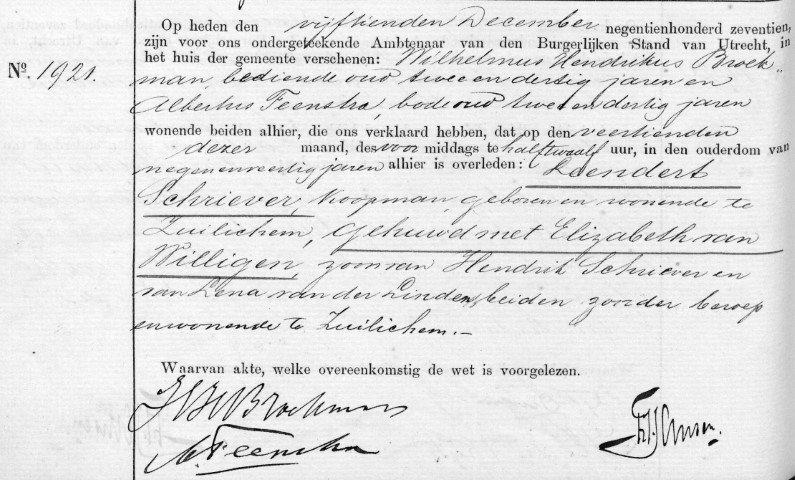 Op heden den vijftienden December negentienhonderd zeventien,
zijn voor ons ondergeteekende Ambtenaar van den Burgerlijken Stand van Utrecht, in
het huis der gemeente verschenen: Wilhelmus Hendrikus Broek„
Nº. 1921.
man, bediende oud twee en dertig jaren en
Albertus Feenstra, bode oud twee en dertig jaren
wonende beiden alhier, die ons verklaard hebben, dat op den veertienden
dezer maand, des voor middags te half twaalf uur, in den ouderdom van
negen en veertig jaren alhier is overleden: Leendert
Schriever, koopman, geboren en wonende te
Zuilichem, gehuwd met Elizabeth van
Willigen, zoon van Hendrik Schriever en
van Lena van der Linden, beiden zonder beroep
en wonende te Zuilichem.–
Waarvan akte, welke overeenkomstig de wet is voorgelezen.
Broekman
A. Feenstra